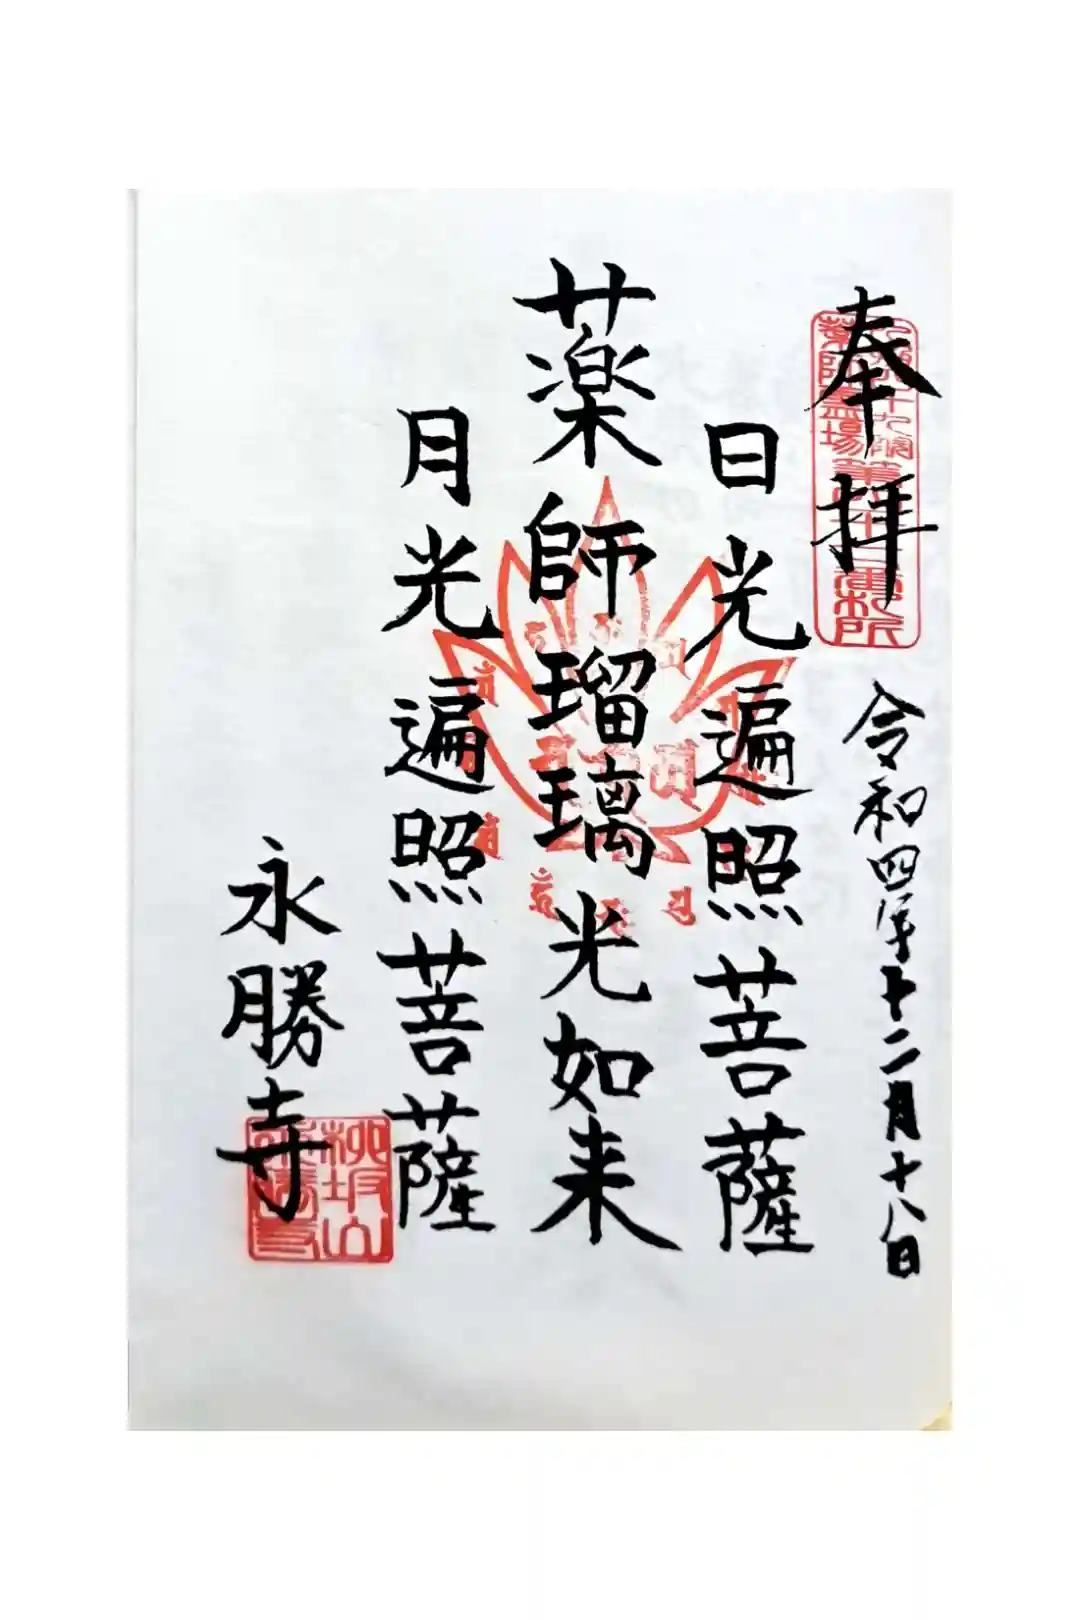 奉拝
令和四年十二月十八日
日光遍照菩薩
薬師瑠璃光如来
月光遍照菩薩
永勝寺
桃坂山